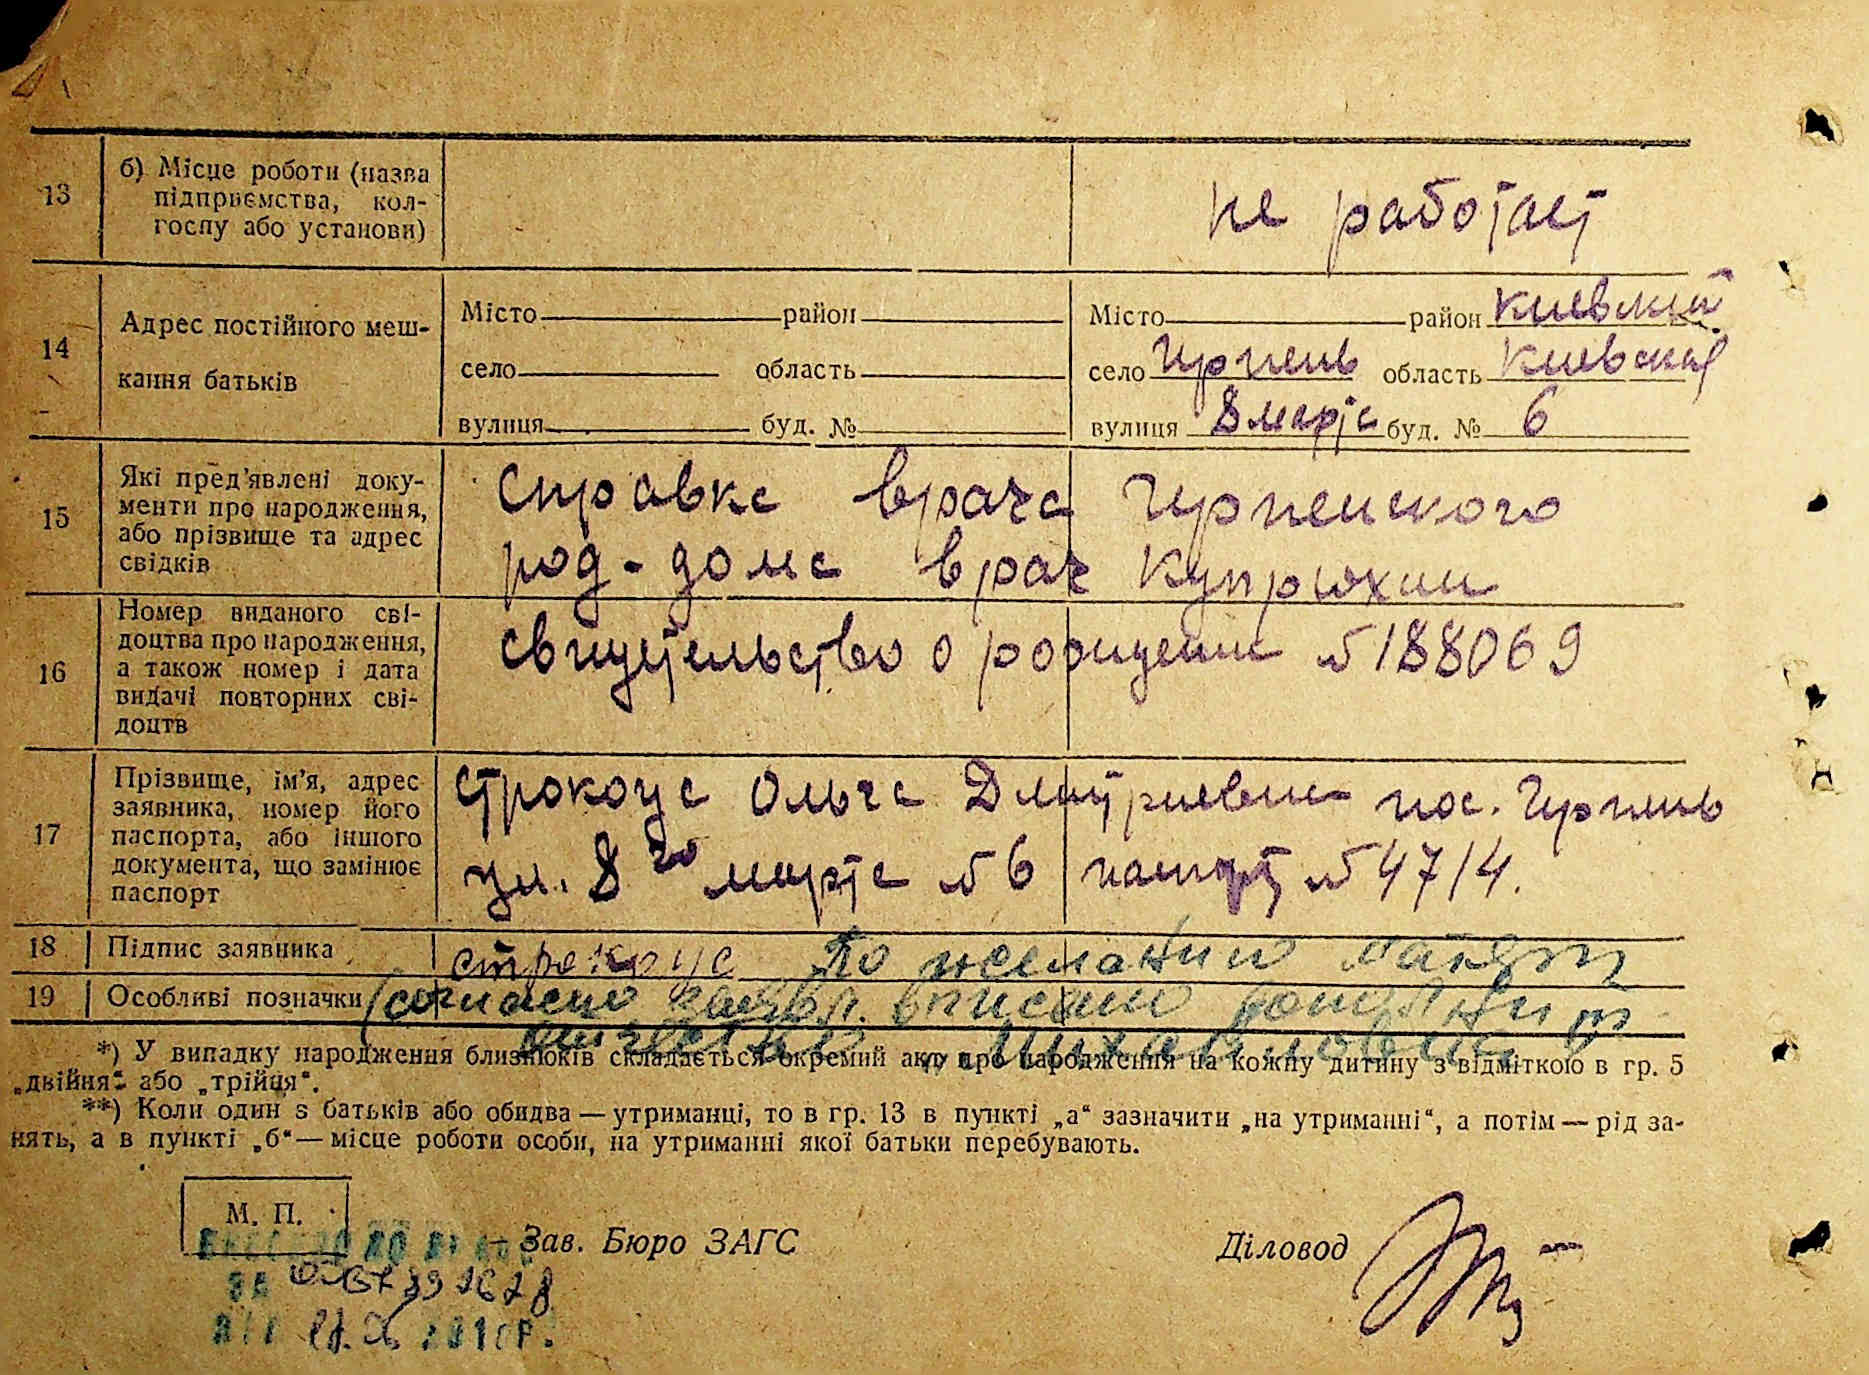 13
б) Місце роботи (назва
підприємства, кол-
госпу або установи)
не работает
14
Адрес постійного меш-
кання батьків
Місто район
село область
вулиця буд. №
Місто район Киевский
село Ирпень область Киевская
вулиця 8 марта буд. № 6
15
Які пред'явлені доку-
менти про народження,
або прізвище та адрес
свідків
Справка врача Ирпенского
род-дома врач Купрюхин
16
Номер виданого сві-
доцтва про народження,
а також номер і дата
видачі повторних сві-
доцтв
свидетельство о рождении № 188069
17
Прізвище, ім'я, адрес
заявника, номер його
паспорта, або іншого
документа, що замінює
паспорт
Ольга Дмитриевна пос. Ирпень
ул. 8го марта № 6 паспорт № 4714.
18 Підпис заявника
По желанию матери
19 Особливі позначки
(согласно заявл. вписано
*) У випадку народження близнюків складається окремий акт про народження на кожну дитину з відміткою в гр. 5
„двійня“ або „трійця“.
**) Коли один з батьків або обидва — утриманці, то в гр. 13 в пункті „а“ зазначити „на утриманні“, а потім — рід за-
нять, а в пункті „б“ — місце роботи особи, на утриманні якої батьки перебувають.
М. П.
Зав. Бюро ЗАГС
Діловод